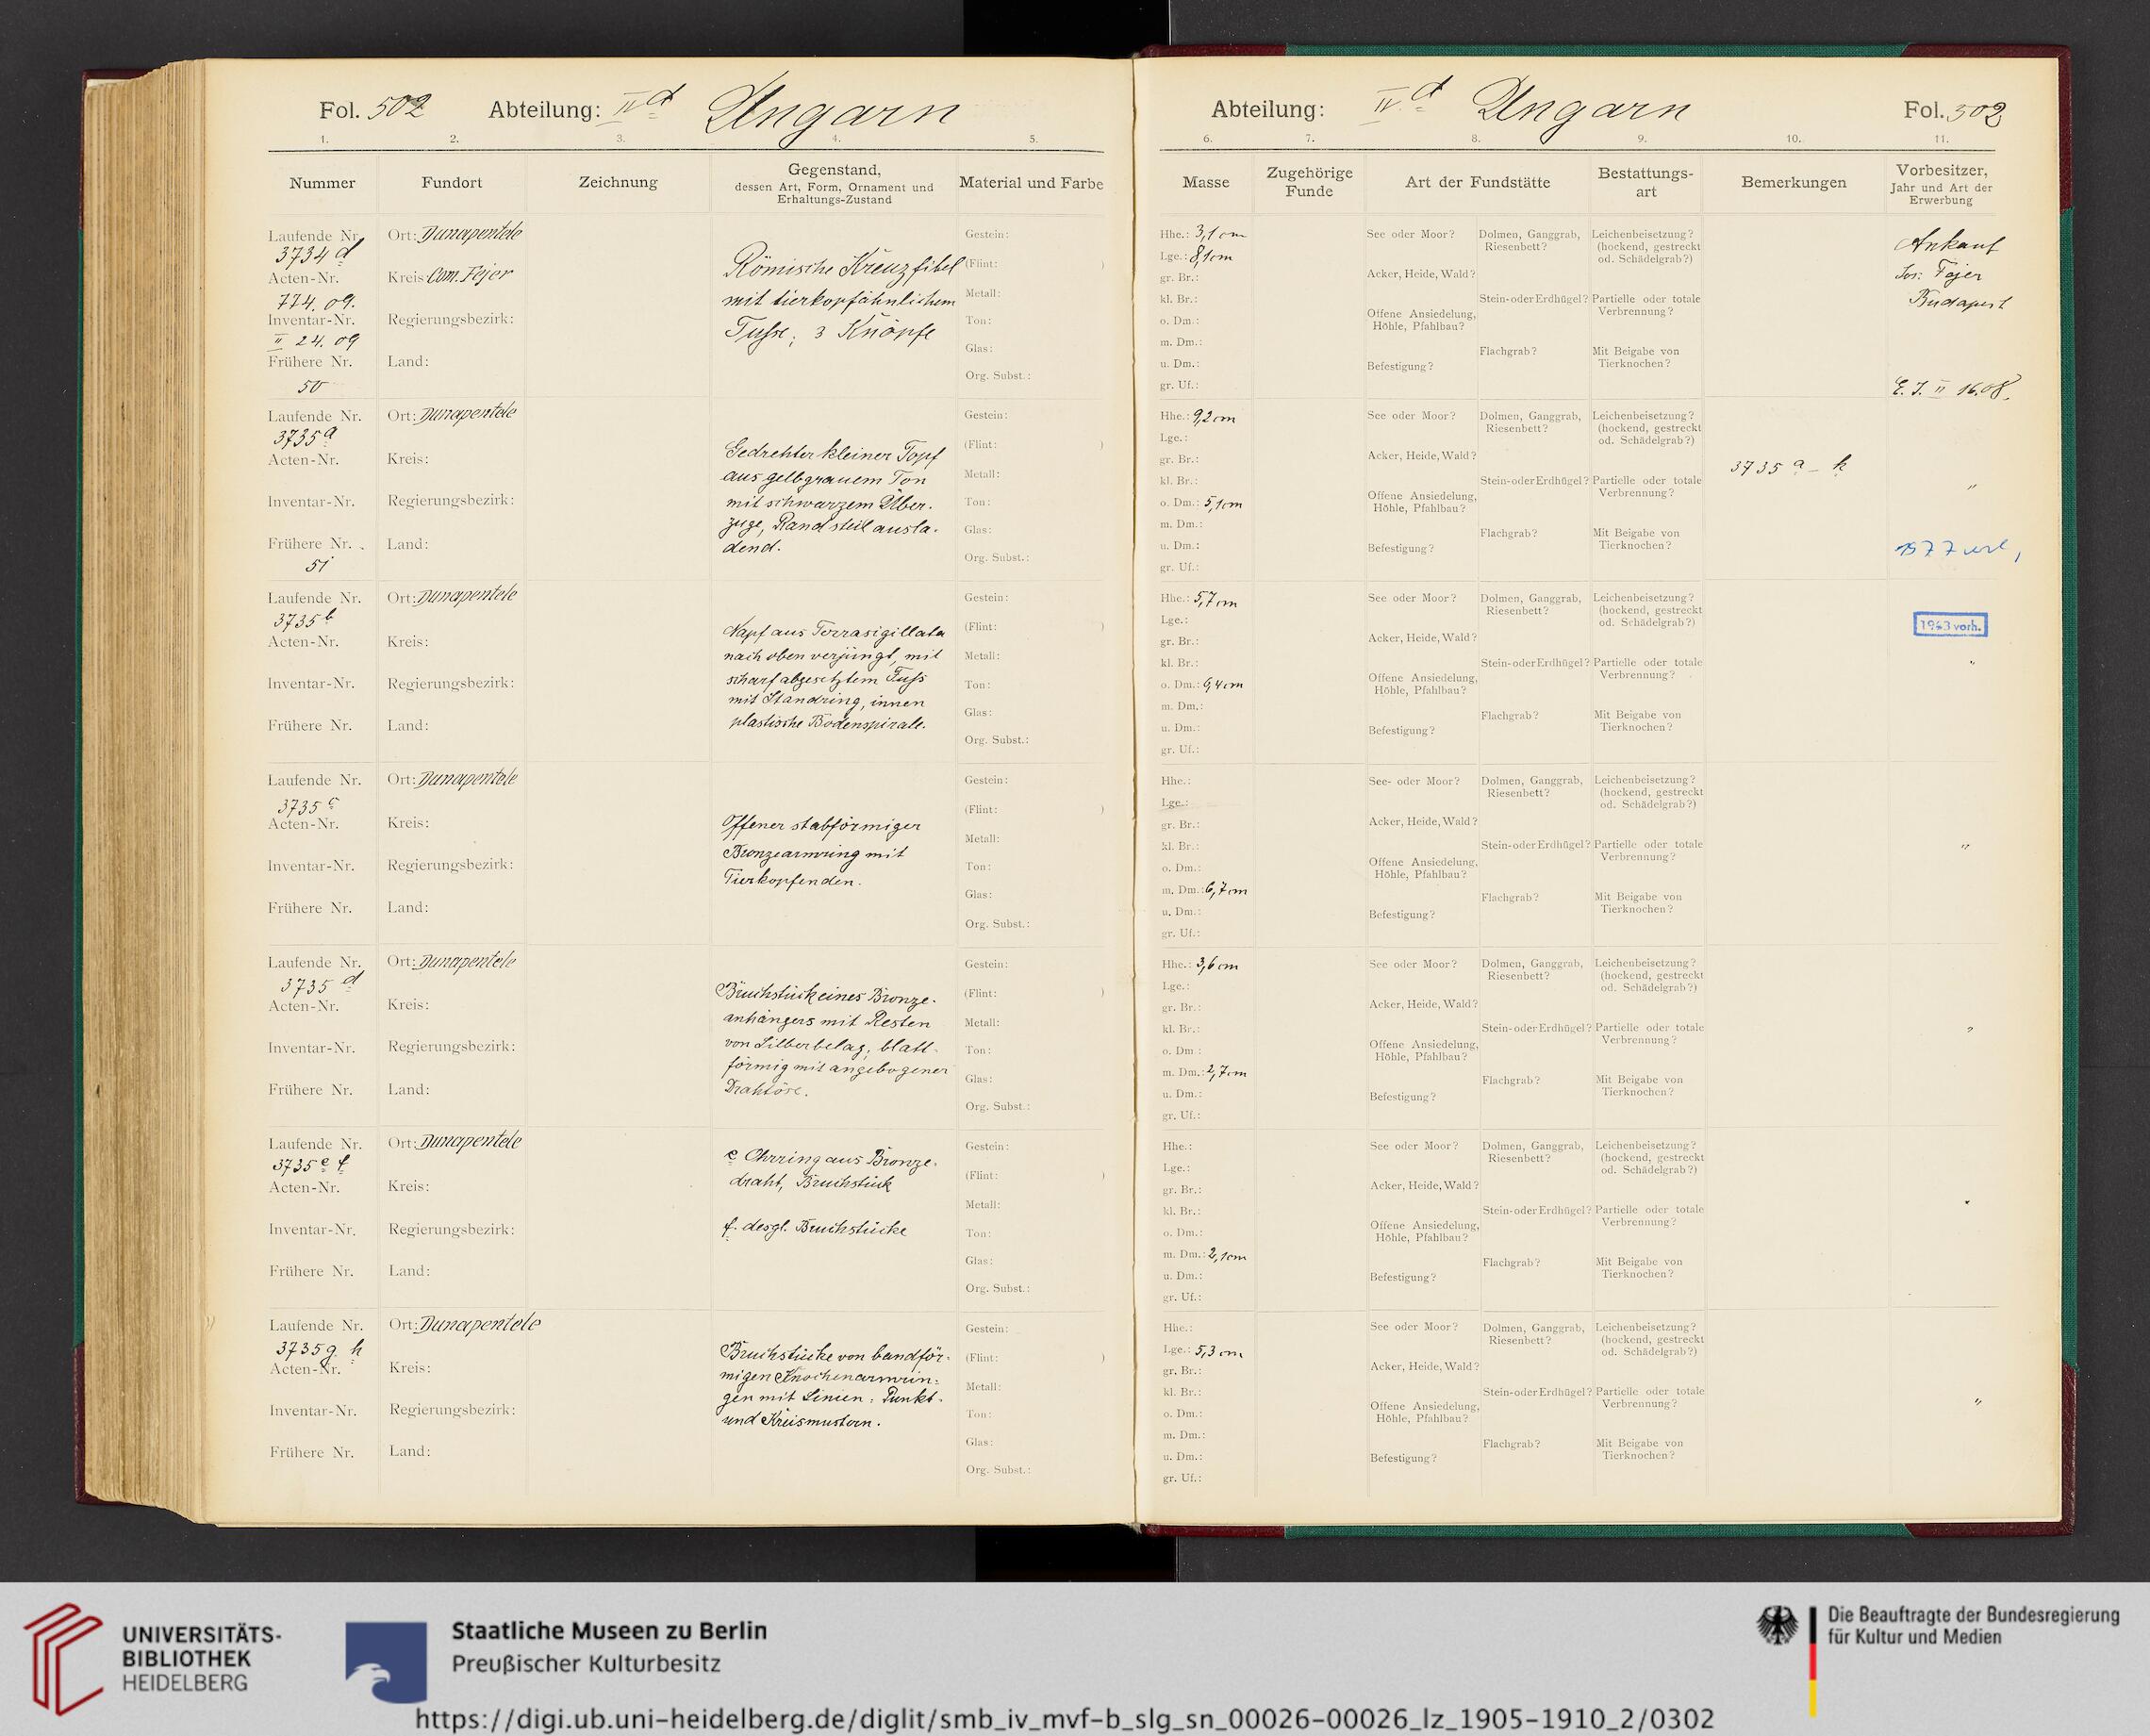 Fol. 502 Abteilung: Ungarn
1. 2. 3. 4. 5.
Nummer Fundort Zeichnung Gegenstand, dessen Art, Form, Ornament und Erhaltungs-Zustand Material und Farbe
Laufende Nr. 3734 d
Acten-Nr. 774. 09.
Inventar-Nr. II 24. 09
Frühere Nr. 50
Ort: Dunapentele
Kreis: Com. Fejer
Regierungsbezirk:
Land:
Römische Kreuzfibel
mit tierkopfähnlichem
Fusse; 3 Knöpfe
Gestein:
(Flint: )
Metall:
Ton:
Glas:
Org. Subst.:
Laufende Nr. 3735 a
Acten-Nr.
Inventar-Nr.
Frühere Nr. 51
Ort: Dunapentele
Kreis:
Regierungsbezirk:
Land:
Gedrehter kleiner Topf
aus gelbgrauem Ton
mit schwarzem Über-
zuge, Rand steil ausla-
dend.
Gestein:
(Flint: )
Metall:
Ton:
Glas:
Org. Subst.:
Laufende Nr. 3735 b
Acten-Nr.
Inventar-Nr.
Frühere Nr.
Ort: Dunapentele
Kreis:
Regierungsbezirk:
Land:
Napf aus Terrasigillata
nach oben verjüngt, mit
scharf abgesetztem Fuss
mit Standring, innen
plastische Bodenspirale.
Gestein:
(Flint: )
Metall:
Ton:
Glas:
Org. Subst.:
Laufende Nr. 3735 c
Acten-Nr.
Inventar-Nr.
Frühere Nr.
Ort: Dunapentele
Kreis:
Regierungsbezirk:
Land:
Offener stabförmiger
Bronzearmring mit
Tierkopfenden.
Gestein:
(Flint: )
Metall:
Ton:
Glas:
Org. Subst.:
Laufende Nr. 3735 d
Acten-Nr.
Inventar-Nr.
Frühere Nr.
Ort: Dunapentele
Kreis:
Regierungsbezirk:
Land:
Bruchstück eines Bronze-
anhängers mit Resten
von Silberbelag, blatt-
förmig mit angebogener
Drahtöse.
Gestein:
(Flint: )
Metall:
Ton:
Glas:
Org. Subst.:
Laufende Nr. 3735 e f
Acten-Nr.
Inventar-Nr.
Frühere Nr.
Ort: Dunapentele
Kreis:
Regierungsbezirk:
Land:
e Ohrring aus Bronze-
draht, Bruchstück
f. desgl. Bruchstücke
Gestein:
(Flint: )
Metall:
Ton:
Glas:
Org. Subst.:
Laufende Nr. 3735 g. h
Acten-Nr.
Inventar-Nr.
Frühere Nr.
Ort: Dunapentele
Kreis:
Regierungsbezirk:
Land:
Bruchstücke von bandför-
migen Knochenarmrin-
gen mit Linien-, Punkt-
und Kreismustern.
Gestein:
(Flint: )
Metall:
Ton:
Glas:
Org. Subst.:
Abteilung: Ungarn Fol. 502
6. 7. 8. 9. 10. 11.
Masse Zugehörige Funde Art der Fundstätte Bestattungs-art Bemerkungen Vorbesitzer, Jahr und Art der Erwerbung
Hhe.: 3,1 cm
Lge.: 8,1 cm
gr. Br.:
kl. Br.:
o. Dm.:
m. Dm.:
u. Dm.:
gr. Uf.:
See oder Moor?
Acker, Heide, Wald?
Offene Ansiedelung, Höhle, Pfahlbau?
Befestigung?
Dolmen, Ganggrab, Riesenbett?
Stein- oder Erdhügel?
Flachgrab?
Leichenbeisetzung? (hockend, gestreckt od. Schädelgrab?)
Partielle oder totale Verbrennung?
Mit Beigabe von Tierknochen?
Ankauf
Jos: Fejer
Budapest
E. J. II 16.08.
Hhe.: 9,2 cm
Lge.:
gr. Br.:
kl. Br.:
o. Dm.: 5,1 cm
m. Dm.:
u. Dm.:
gr. Uf.:
See oder Moor?
Acker, Heide, Wald?
Offene Ansiedelung, Höhle, Pfahlbau?
Befestigung?
Dolmen, Ganggrab, Riesenbett?
Stein- oder Erdhügel?
Flachgrab?
Leichenbeisetzung? (hockend, gestreckt od. Schädelgrab?)
Partielle oder totale Verbrennung?
Mit Beigabe von Tierknochen?
3735 a - h
"
Hhe.: 5,7 cm
Lge.:
gr. Br.:
kl. Br.:
o. Dm.: 9,4 cm
m. Dm.:
u. Dm.:
gr. Uf.:
See oder Moor?
Acker, Heide, Wald?
Offene Ansiedelung, Höhle, Pfahlbau?
Befestigung?
Dolmen, Ganggrab, Riesenbett?
Stein- oder Erdhügel?
Flachgrab?
Leichenbeisetzung? (hockend, gestreckt od. Schädelgrab?)
Partielle oder totale Verbrennung?
Mit Beigabe von Tierknochen?
1963 vorh.
"
Hhe.:
Lge.:
gr. Br.:
kl. Br.:
o. Dm.:
m. Dm.: 6,7 cm
u. Dm.:
gr. Uf.:
See- oder Moor?
Acker, Heide, Wald?
Offene Ansiedelung, Höhle, Pfahlbau?
Befestigung?
Dolmen, Ganggrab, Riesenbett?
Stein- oder Erdhügel?
Flachgrab?
Leichenbeisetzung? (hockend, gestreckt od. Schädelgrab?)
Partielle oder totale Verbrennung?
Mit Beigabe von Tierknochen?
"
Hhe.: 3,6 cm
Lge.:
gr. Br.:
kl. Br.:
o. Dm.:
m. Dm.: 2,7 cm
u. Dm.:
gr. Uf.:
See oder Moor?
Acker, Heide, Wald?
Offene Ansiedelung, Höhle, Pfahlbau?
Befestigung?
Dolmen, Ganggrab, Riesenbett?
Stein- oder Erdhügel?
Flachgrab?
Leichenbeisetzung? (hockend, gestreckt od. Schädelgrab?)
Partielle oder totale Verbrennung?
Mit Beigabe von Tierknochen?
"
Hhe.:
Lge.:
gr. Br.:
kl. Br.:
o. Dm.:
m. Dm.: 2,1 cm
u. Dm.:
gr. Uf.:
See oder Moor?
Acker, Heide, Wald?
Offene Ansiedelung, Höhle, Pfahlbau?
Befestigung?
Dolmen, Ganggrab, Riesenbett?
Stein- oder Erdhügel?
Flachgrab?
Leichenbeisetzung? (hockend, gestreckt od. Schädelgrab?)
Partielle oder totale Verbrennung?
Mit Beigabe von Tierknochen?
"
Hhe.:
Lge.: 5,3 cm
gr. Br.:
kl. Br.:
o. Dm.:
m. Dm.:
u. Dm.:
gr. Uf.:
See oder Moor?
Acker, Heide, Wald?
Offene Ansiedelung, Höhle, Pfahlbau?
Befestigung?
Dolmen, Ganggrab, Riesenbett?
Stein- oder Erdhügel?
Flachgrab?
Leichenbeisetzung? (hockend, gestreckt od. Schädelgrab?)
Partielle oder totale Verbrennung?
Mit Beigabe von Tierknochen?
"
UNIVERSITÄTS-
BIBLIOTHEK
HEIDELBERG
Staatliche Museen zu Berlin
Preußischer Kulturbesitz
Die Beauftragte der Bundesregierung
für Kultur und Medien
https://digi.ub.uni-heidelberg.de/diglit/smb_iv_mvf-b_slg_sn_00026-00026_lz_1905-1910_2/0302